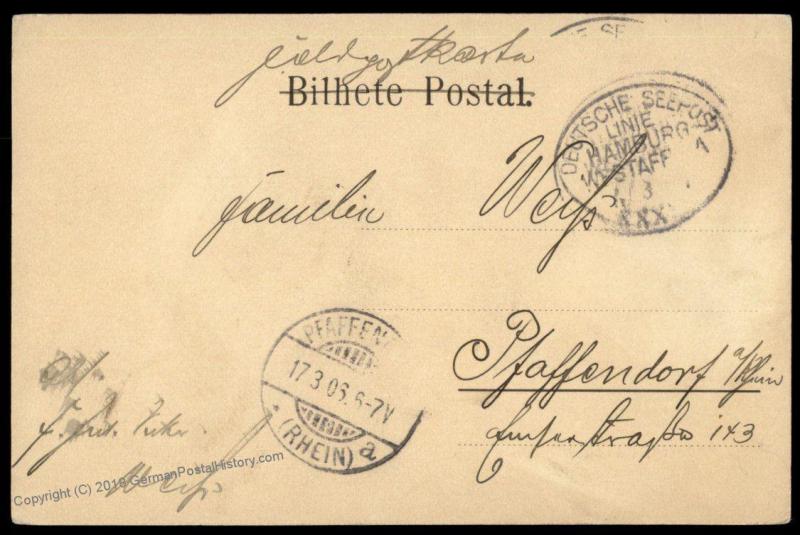 Feldpostkarte
Bilhete Postal.
DEUTSCHE SEEPOST
LINIE
HAMBURG
WESTAFR
XXX
Familie Weiß
PFAFFEN
17.3.06.6-7V
(RHEIN) a
Pfaffendorf a/Rhein
Emserstraße 143
Weiß
Copyright (C) 2018 GermanPostalHistory.com